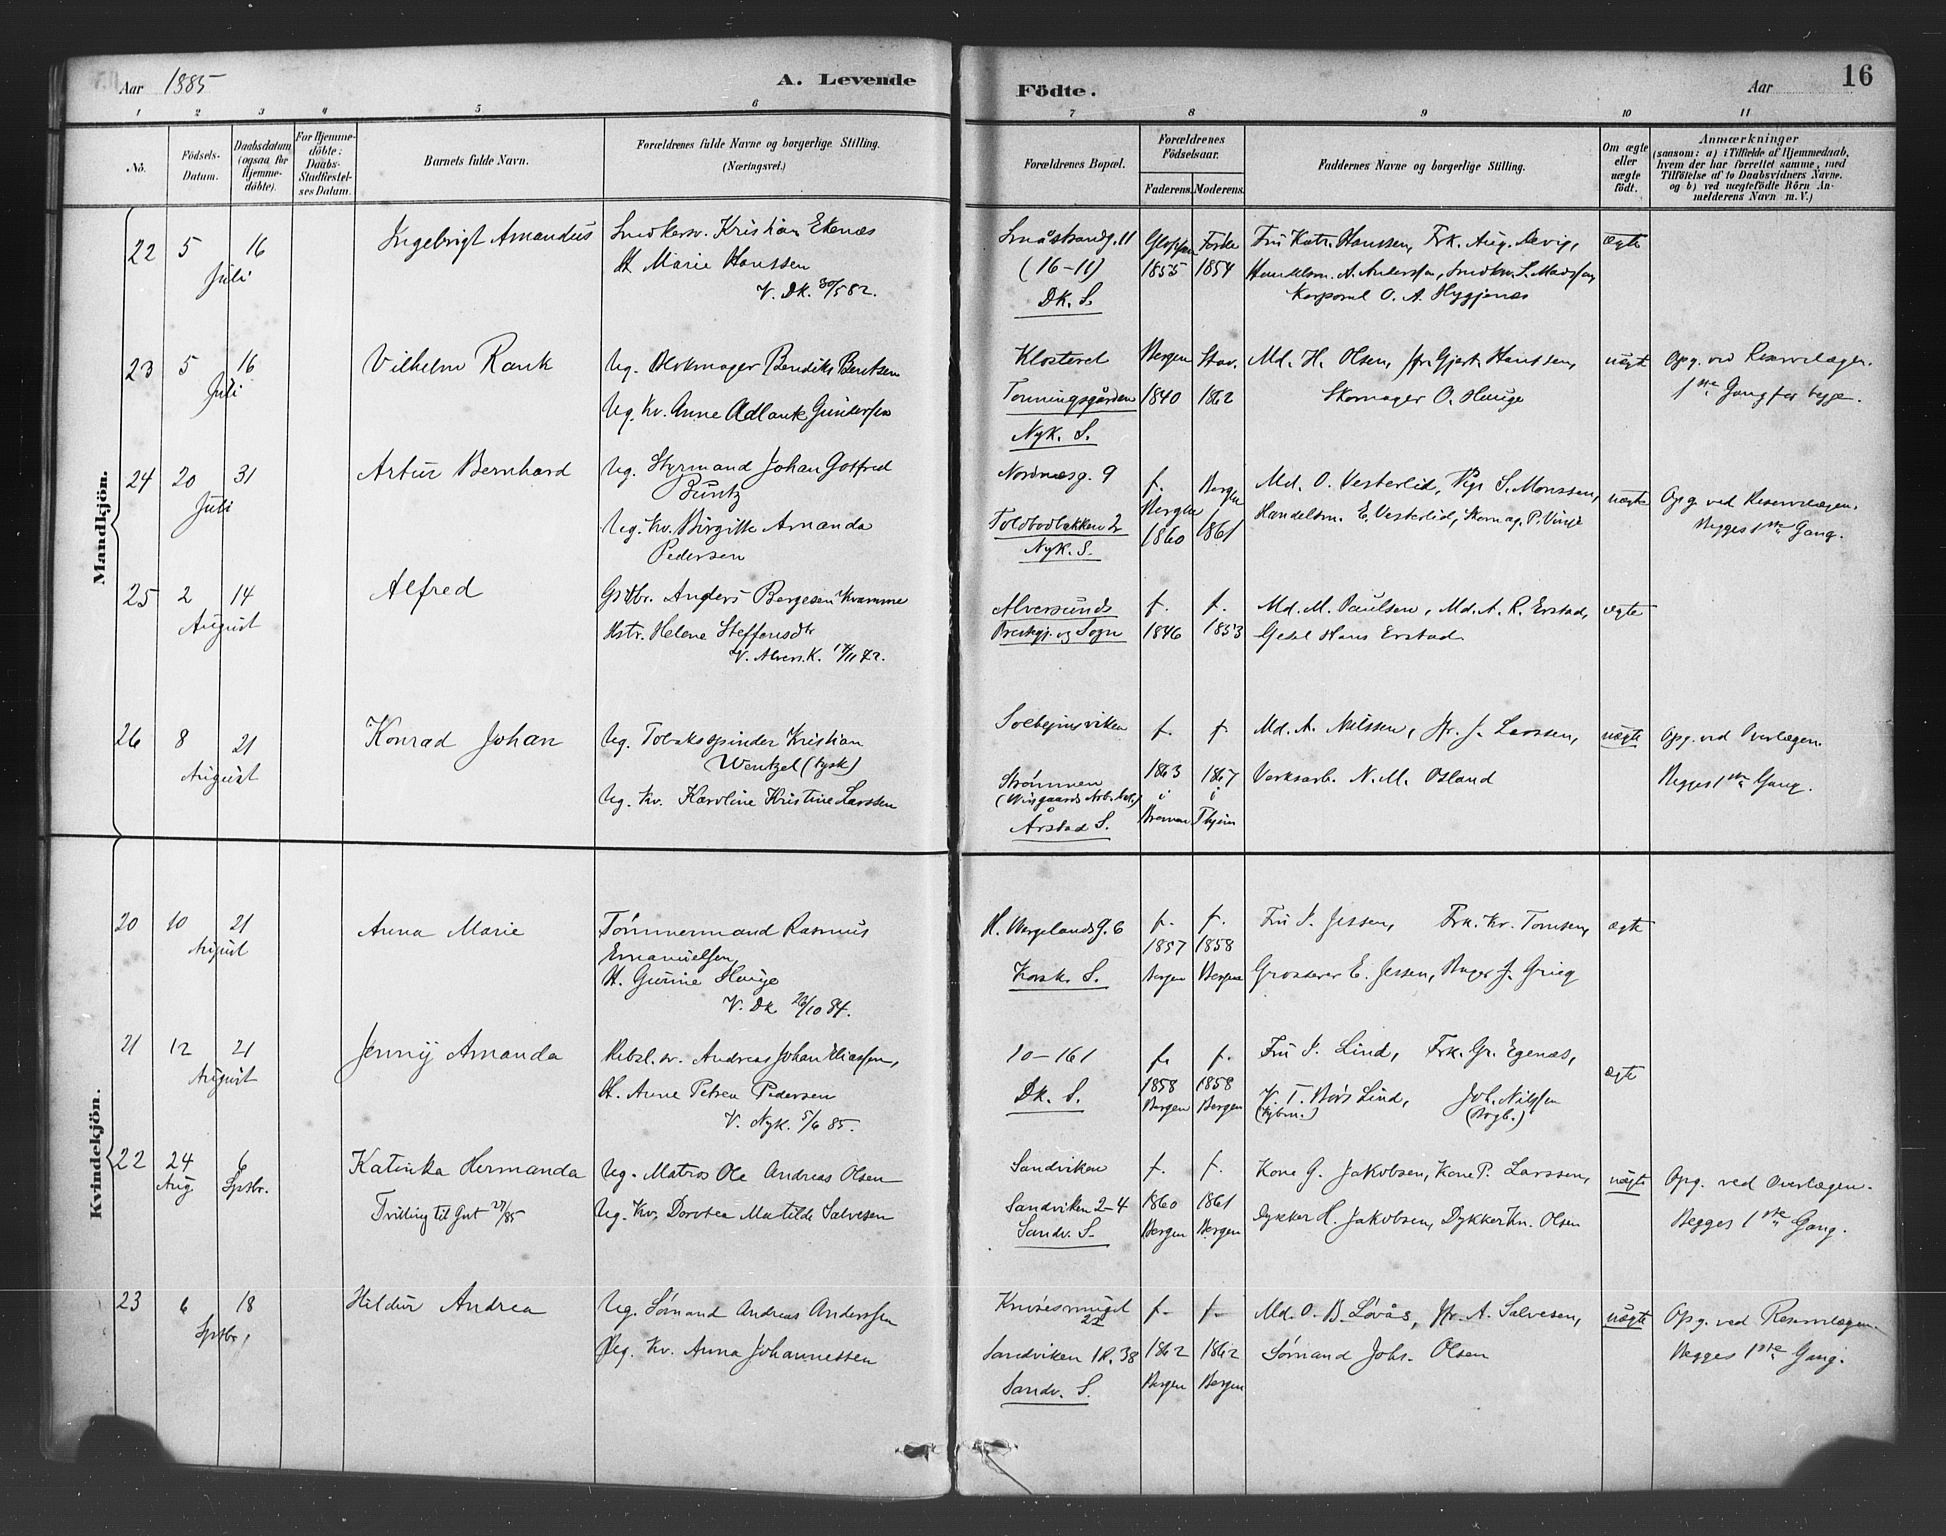 Aar 1885
A. Levende
1 2 3 4 5 6
No.
Födsels-
Datum.
Daabsdatum
(ogsaa for
Hjemme-
döbte).
For Hjemme-
döbte:
Daabs-
Stadfæstel-
ses Datum.
Barnets fulde Navn.
Forældrenes fulde Navne og borgerlige Stilling.
(Næringsvei.)
Mandkjön.
22 5 16 Juli
Ingebrigt Amandus
Snedkersv. Kristian Ekenæs
H. Marie Hanssen
V. Dk. 30/5 82.
23 5 16 Juli
Vilhelm Rank
Ug. Blokmager Bendik Bentsen
Ug. Kv. Anne Adlauk Gundersen
24 20 31 Juli
Artur Bernhard
Ug. Styrmand Johan Gotfred
Buntz
Ug. Kv. Birgitte Amanda
Pedersen
25 2 14 August
Alfred
Gdbr. Anders Børgesen Kvamme
Hstr. Helene Steffensdtr
V. Alvers. K. 17/11 72.
26 8 21 August
Konrad Johan
Ug. Tobakspinder Kristian
Wentzel (tysk)
Ug. Kv. Karoline Kristine Larssen
Kvindekjön.
20 10 21 August
Anna Marie
Tømmermand Rasmus
Emanuelsen,
H. Gurine Hauge
V. Dk 26/10 84.
21 12 21 August
Jenny Amanda
Rebsl. sv. Andreas Johan Eliassen,
H. Anne Petrea Pedersen
V. Nyk. 5/6 85.
22 24 Aug. 6 Sptbr.
Katinka Hermanda
Tvilling til Gut 27/85
Ug. Matros Ole Andreas Olsen
Ug. Kv. Dorotea Matilde Salvesen
23 6 18 Sptbr.
Hildur Andrea
Ug. Sømand Andreas Anderssen
Pig. Kv. Anna Johannessen
Födte.
Aar
16
7 8 9 10 11
Forældrenes Bopæl.
Forældrenes
Födselsaar.
Faderens. Moderens.
Faddernes Navne og borgerlige Stilling.
Om ægte
eller
uægte
födt.
Anmærkninger
(saasom: a) i Tilfælde af Hjemmedaab,
hvem der har forrettet samme, med
Tilföielse af to Daabsvidners Navne.
og b) ved uægtefödte Börn An-
melderens Navn m. V.)
Småstrandg. 11
(16-11)
Dk. S.
Gloppen
1855
Førde
1854
Fru Katr. Hanssen, Frk. Aug. Nevig,
Handelsm. A. Anderssen, Snedkm. L. Madssen,
Korporal O. A. Hyggenæs
ægte
Klosteret
Tonningsgården
Nyk. S.
Bergen
1840
Stav.
1862
Md. H. Olsen, Jfr. Gjert. Hanssen,
Skomager O. Hauge
uægt
Opg. ved Reservelægen.
1ste Gang for begge.
Nordnæsg. 9
Toldbodbakken 2
Nyk. S.
f. Bergen
1860
Bergen
1861
Md. O. Vesterlid, Pige S. Monssen,
Handelsm. E. Vesterlid, Skomag. P. Vinje
uægte
Opg. ved Reservelægen.
Begges 1ste Gang.
Alversunds
Prestgj. og Sogn
f.
1846
f.
1853
Md. M. Paulsen, Md. A. R. Erstad,
Gesel Hans Erstad
ægte
Solheimsviken
Strømmen
(Wisgaards Arb. bol.)
Årstad S.
f.
1863
i
Bremen
f.
1867
i
Thjem
Md. A. Nilssen, Jfr. J. Larssen,
Verksarb. N. M. Osland
uægte
Opg. ved Overlægen.
Begges 1ste Gang.
H. Wergelandsg. 6
Korsk. S.
f.
1857
Bergen
f.
1858
Bergen
Fru J. Jessen, Frk. Kr. Tomsen,
Grosserer E. Jessen, Bager J. Grieg
ægte
10-161
Dk. S.
f.
1858
Bergen
f.
1858
Bergen
Fru J. Lind, Frk. Gr. Egenæs,
V. T. Børs Lind, Joh. Nilssen
(Kjbm.) (Bogb.)
ægte
Sandviken
Sandviken 2-4
Sandv. S.
f.
1860
Bergen
f.
1861
Bergen
Kone G. Jakobsen, Kone P. Larssen,
Dykker H. Jakobsen, Dykker Kn. Olsen
uægte
Opg. ved Overlægen.
Begges 1ste Gang.
Knøsesmuget
22
Sandviken 1R. 38
Sandv. S.
f.
1862
Bergen
f.
1862
Bergen
Md. O. B. Løvås, Jfr. A. Salvesen,
Sømand Johs. Olsen
uægte
Opg. ved Reservelægen.
Begges 1ste Gang.